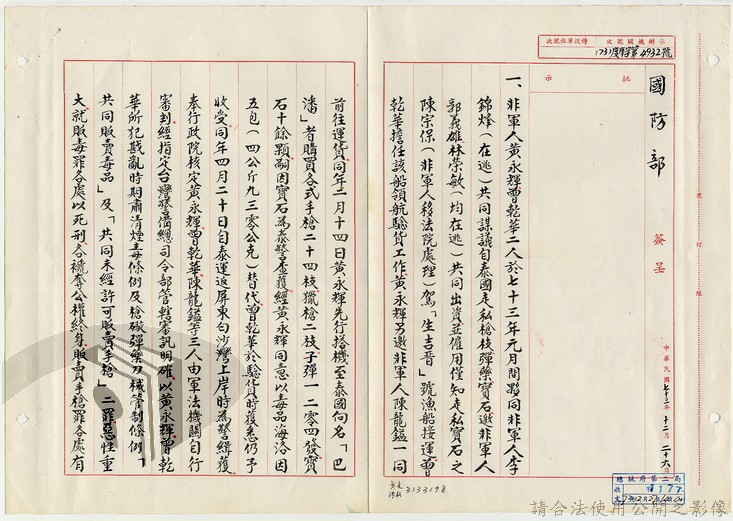 示辦機關號次 轉投單位號次
(73)度障字第4932號
批示
國防部 簽呈
中華民國七十三年十二月二十六日
裝訂線
一、非軍人黃永輝曾乾華二人於七十三年元月間夥同非軍人李
錦燈(在逃)共同謀議自泰國走私槍枝彈藥寶石邀非軍人
郭義雄林榮敏(均在逃)共同出資並僱用僅知走私寶石之
陳宗保(非軍人移法院處理)駕「生吉晉」號漁船接運曾
乾華擔任該船領航驗貨工作黃永輝另邀非軍人陳龍鎰一同
前往運貨同年二月十四日黃永輝先行搭機至泰國向名「巴
潘」者購買各式手槍二十四枝獵槍二枝子彈一二零四發寶
石十餘顆嗣因寶石為泰警查獲經黃永輝同意以毒品海洛因
五包(四公斤九三零公克)替代曾乾華於驗貨時獲悉仍予
收受同年四月二十日自泰運返屏東白沙灣上岸時為警緝獲
奉行政院核定黃永輝曾乾華陳龍鎰等三人由軍法機關自行
審判經指定台灣警備總司令部管轄審訊明確以黃永輝曾乾
華所犯戡亂時期肅清煙毒條例及槍礮彈藥刀械管制條例「
共同販賣毒品」及「共同未經許可販賣手槍」二罪惡性重
大就販毒罪各處以死刑各褫奪公權終身販賣手槍罪各處有
總統府第二局
收文
1177
3133198
請合法使用公開之影像